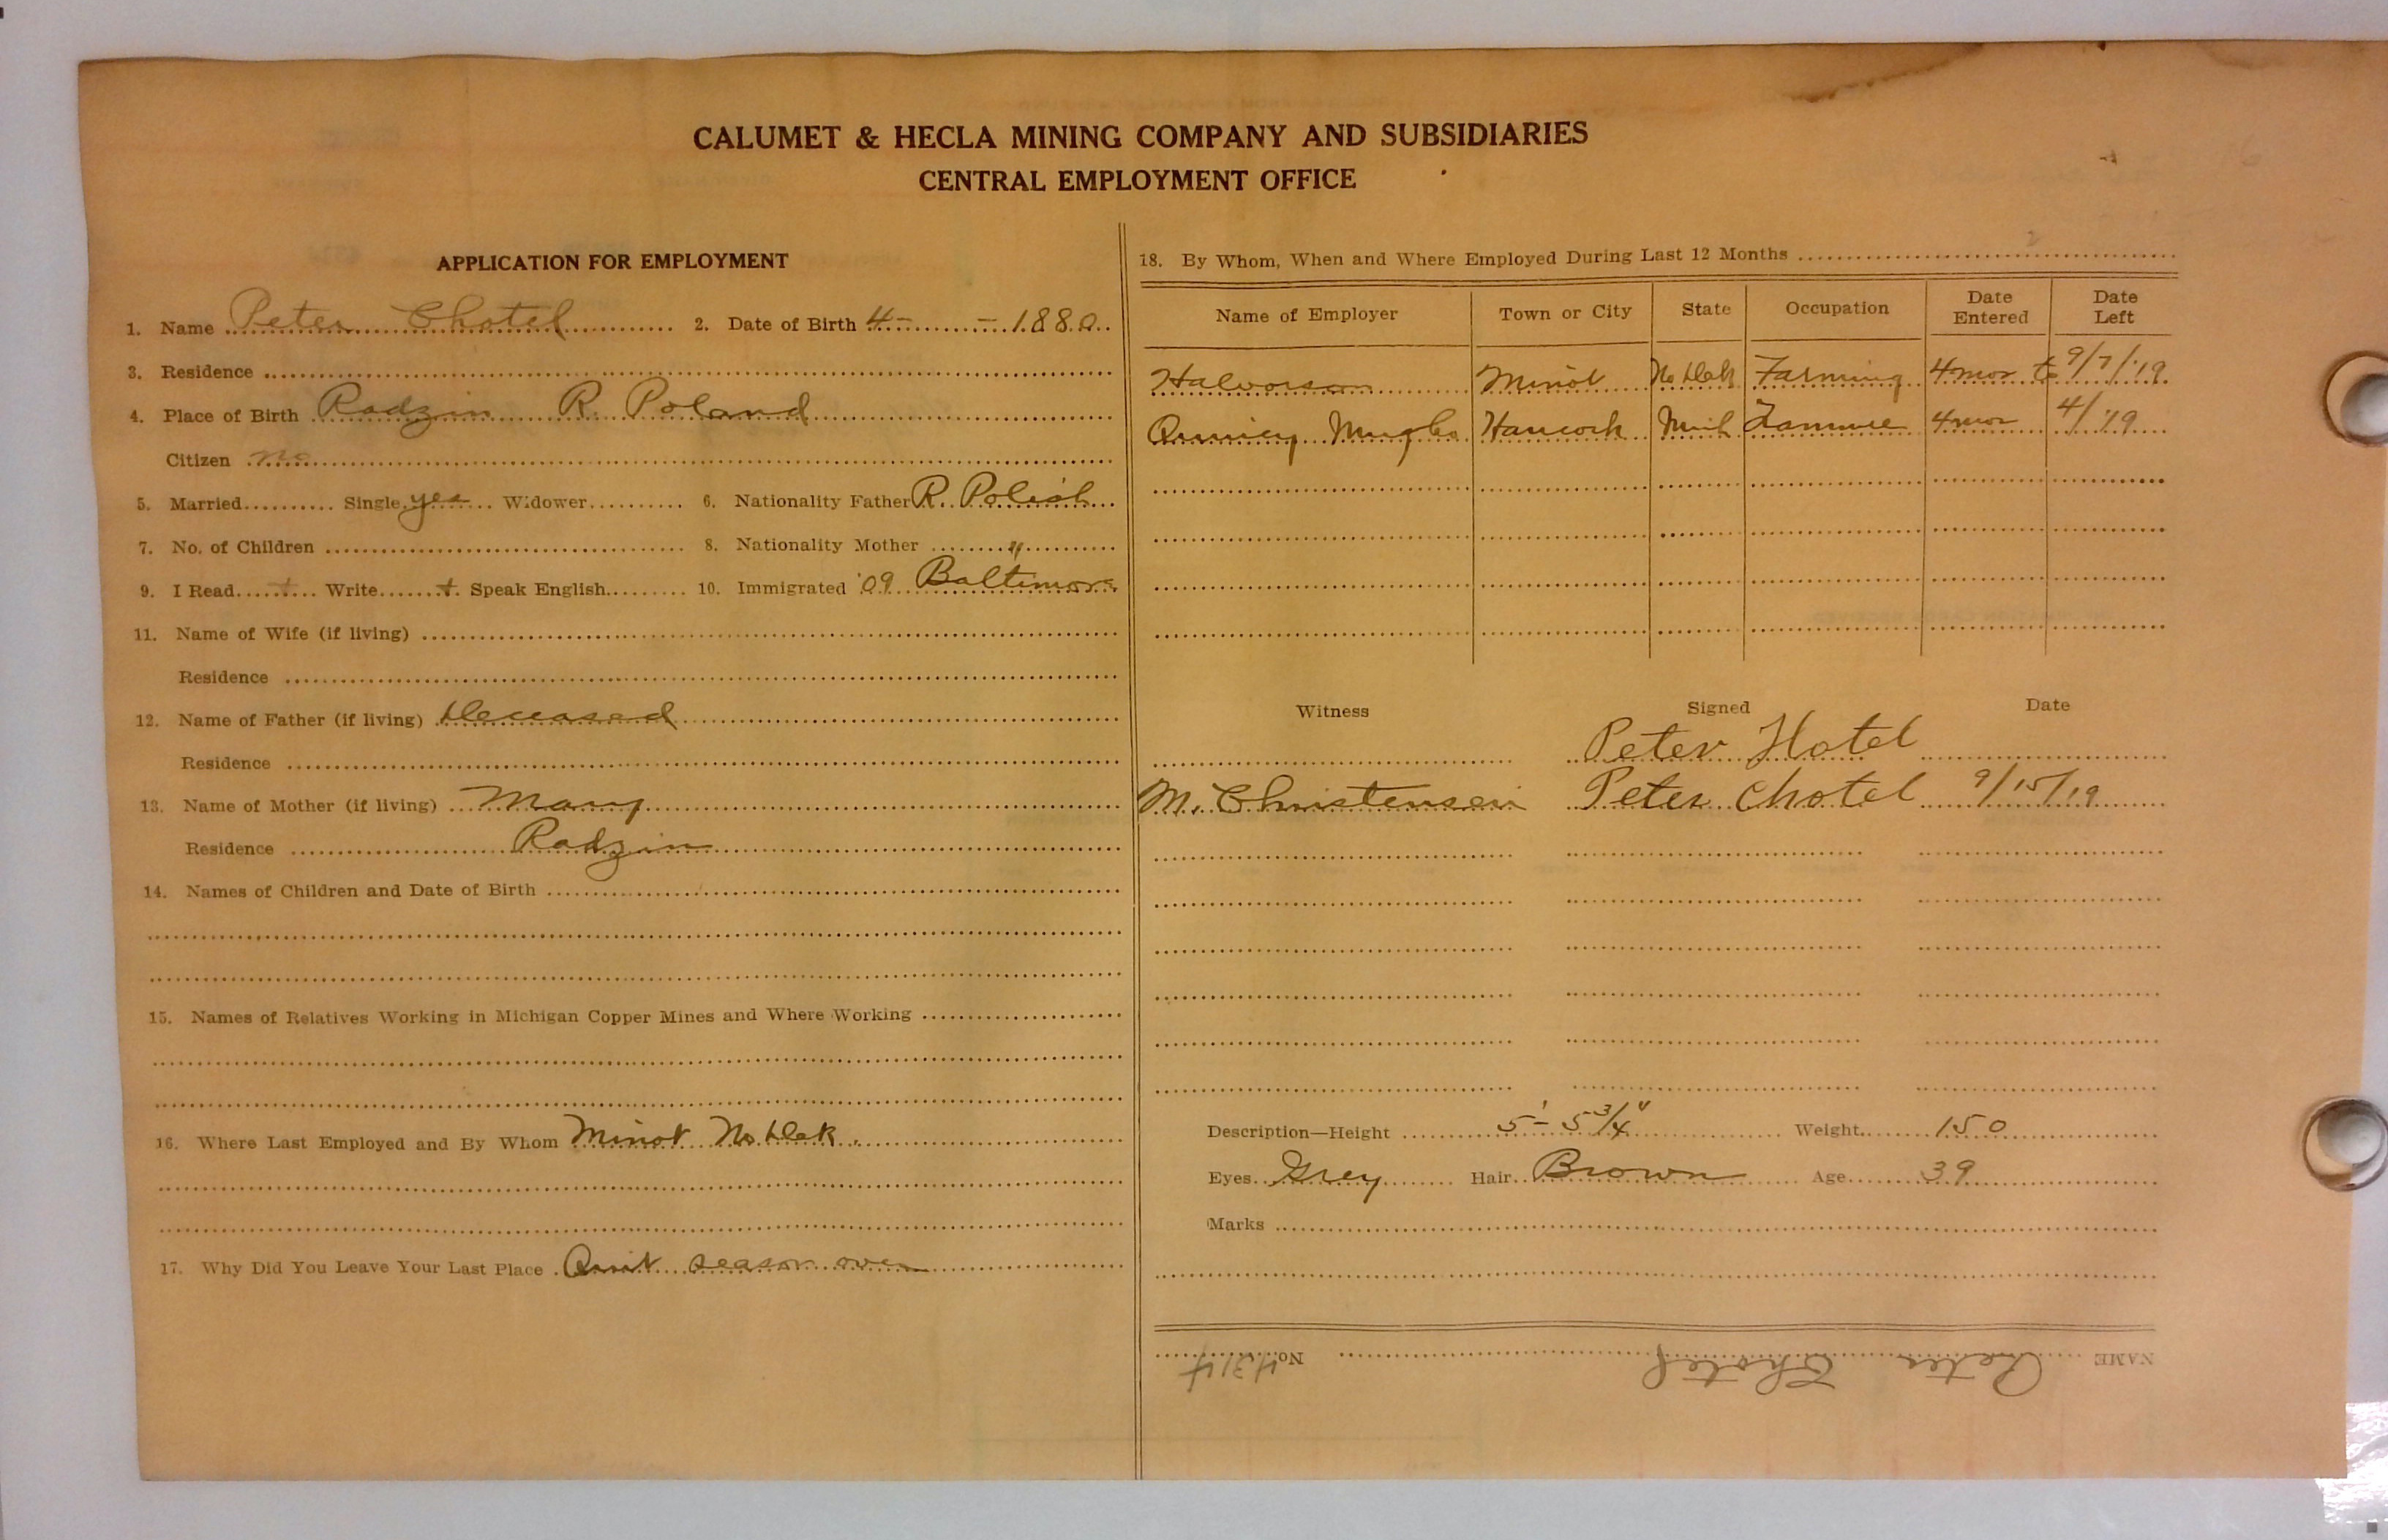 CALUMET & HECLA MINING COMPANY AND SUBSIDIARIES
CENTRAL EMPLOYMENT OFFICE
APPLICATION FOR EMPLOYMENT
1. Name Peter Chotel 2. Date of Birth 4- - 1880
3. Residence
4. Place of Birth Radzin R. Poland
Citizen no
5. Married Single yes Widower 6. Nationality Father R. Polish
7. No. of Children 8. Nationality Mother "
9. I Read + Write + Speak English 10. Immigrated '09 Baltimore
11. Name of Wife (if living)
Residence
12. Name of Father (if living) Deceased
Residence
13. Name of Mother (if living) Mary
Residence Radzin
14. Names of Children and Date of Birth
15. Names of Relatives Working in Michigan Copper Mines and Where Working
16. Where Last Employed and By Whom Minot No Dak.
17. Why Did You Leave Your Last Place Quit season over
18. By Whom, When and Where Employed During Last 12 Months
Name of Employer Town or City State Occupation Date Entered Date Left
Halvorson Minot No Dak Farming 4 mos to 9/7/'19
Quincy Hancock Mich 4 mos 4/'19
Witness Signed Date
Peter Hotel
M. Christensen Peter Chotel 9/15/19
Description—Height 5'-5 3/4" Weight 150
Eyes Grey Hair Brown Age 39
Marks
NAME Peter Chotel No. 4314